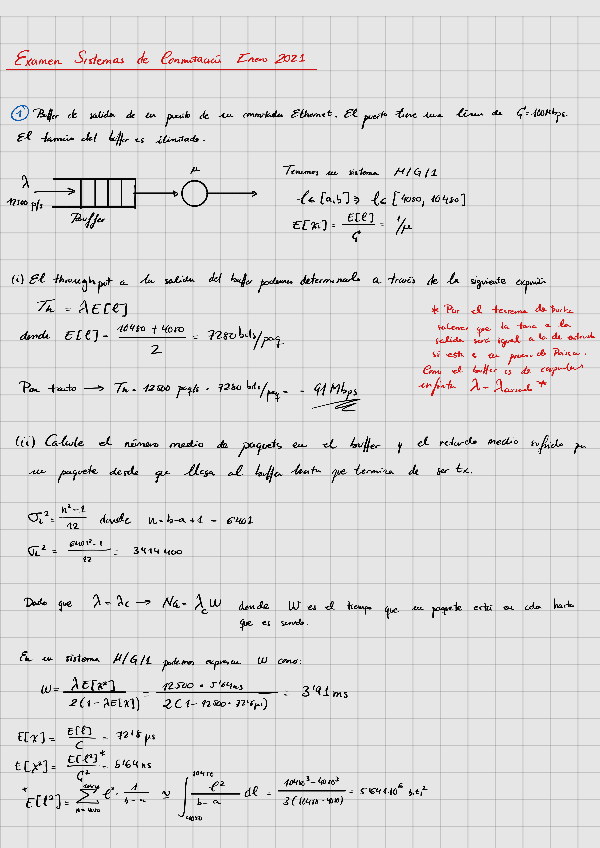 Examen Sistemas de Conmutación Enero 2021
1 Buffer de salida de un puerto de un conmutador Ethernet. El puerto tiene una línea de C=100Mbps.
El tamaño del buffer es ilimitado.
λ
12500 p/s
Buffer
μ
Tenemos un sistema M/G/1
l ∈ [a,b] ⇒ l ∈ [4080, 10480]
E[x] = E[l]/C = 1/μ
(i) El throughput a la salida del buffer podemos determinarlo a través de la siguiente expresión
Th = λE[l]
donde E[l] = (10480 + 4080)/2 = 7280 bits/paq.
Por tanto → Th = 12500 paq/s · 7280 bits/paq = 91 Mbps
* Por el teorema de Burke
sabemos que la tasa a la
salida será igual a la de entrada
si esta es un proceso de Poisson.
Como el buffer es de capacidad
infinita λ = λcursada *
(ii) Calcule el número medio de paquetes en el buffer y el retardo medio sufrido por
un paquete desde que llega al buffer hasta que termina de ser tx.
σL² = (n²-1)/12 donde n = b-a+1 = 6401
σL² = (6401²-1)/12 = 3414400
Dado que λ = λc → Nq = λc W donde W es el tiempo que un paquete está en cola hasta
que es servido.
En un sistema M/G/1 podemos expresar W como:
W = λE[x²]/2(1-λE[x]) = 12500 · 5'64ns/2(1-12500·72'8μs) = 3'91 ms
E[x] = E[l]/C = 72'8 μs
E[x²] = E[l²]*/C² = 5'64 ns
* E[l²] = Σ l² · 1/(b-a) ≈ ∫ l²/(b-a) dl = (10480³-4080³)/3(10480-4080) = 5'641·10⁶ bits²